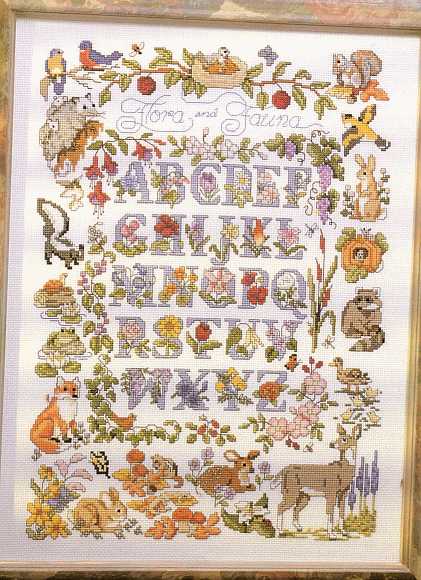 Flora and Fauna
ABCDEF
GHIJKL
MNOPQ
RSTUV
WXYZ